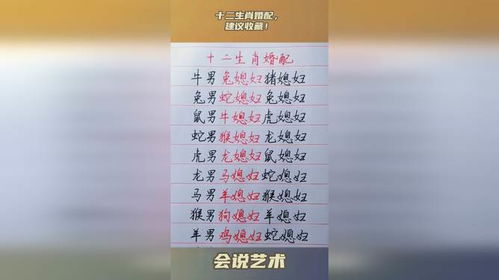 十二生肖婚配，
建议收藏！
十二生肖婚配
牛男兔媳妇猪媳妇
兔男蛇媳妇兔媳妇
鼠男牛媳妇虎媳妇
蛇男猴媳妇龙媳妇
虎男龙媳妇鼠媳妇
龙男马媳妇蛇媳妇
马男羊媳妇猴媳妇
猴男狗媳妇羊媳妇
羊男鸡媳妇蛇媳妇
会说艺术